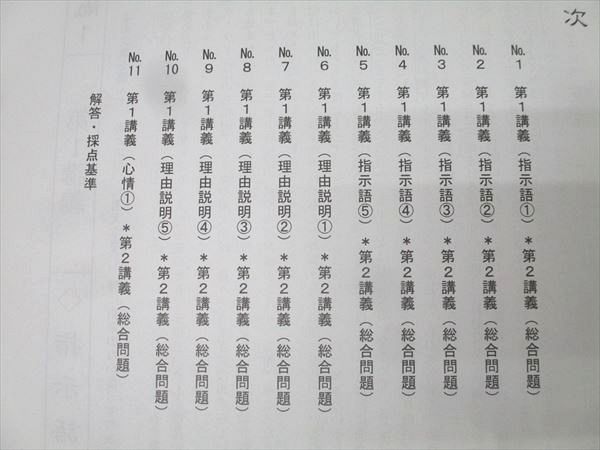 次
No.1 第1講義（指示語①）＊第2講義（総合問題）
No.2 第1講義（指示語②）＊第2講義（総合問題）
No.3 第1講義（指示語③）＊第2講義（総合問題）
No.4 第1講義（指示語④）＊第2講義（総合問題）
No.5 第1講義（指示語⑤）＊第2講義（総合問題）
No.6 第1講義（理由説明①）＊第2講義（総合問題）
No.7 第1講義（理由説明②）＊第2講義（総合問題）
No.8 第1講義（理由説明③）＊第2講義（総合問題）
No.9 第1講義（理由説明④）＊第2講義（総合問題）
No.10 第1講義（理由説明⑤）＊第2講義（総合問題）
No.11 第1講義（心情①）＊第2講義（総合問題）
解答・採点基準